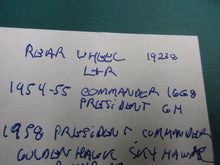 REAR WHEEL 19238
L & R
1954-55 COMMANDER 16G8
PRESIDENT 6H
1958 PRESIDENT COMMANDER
GOLDENHAWK SKYHAWK